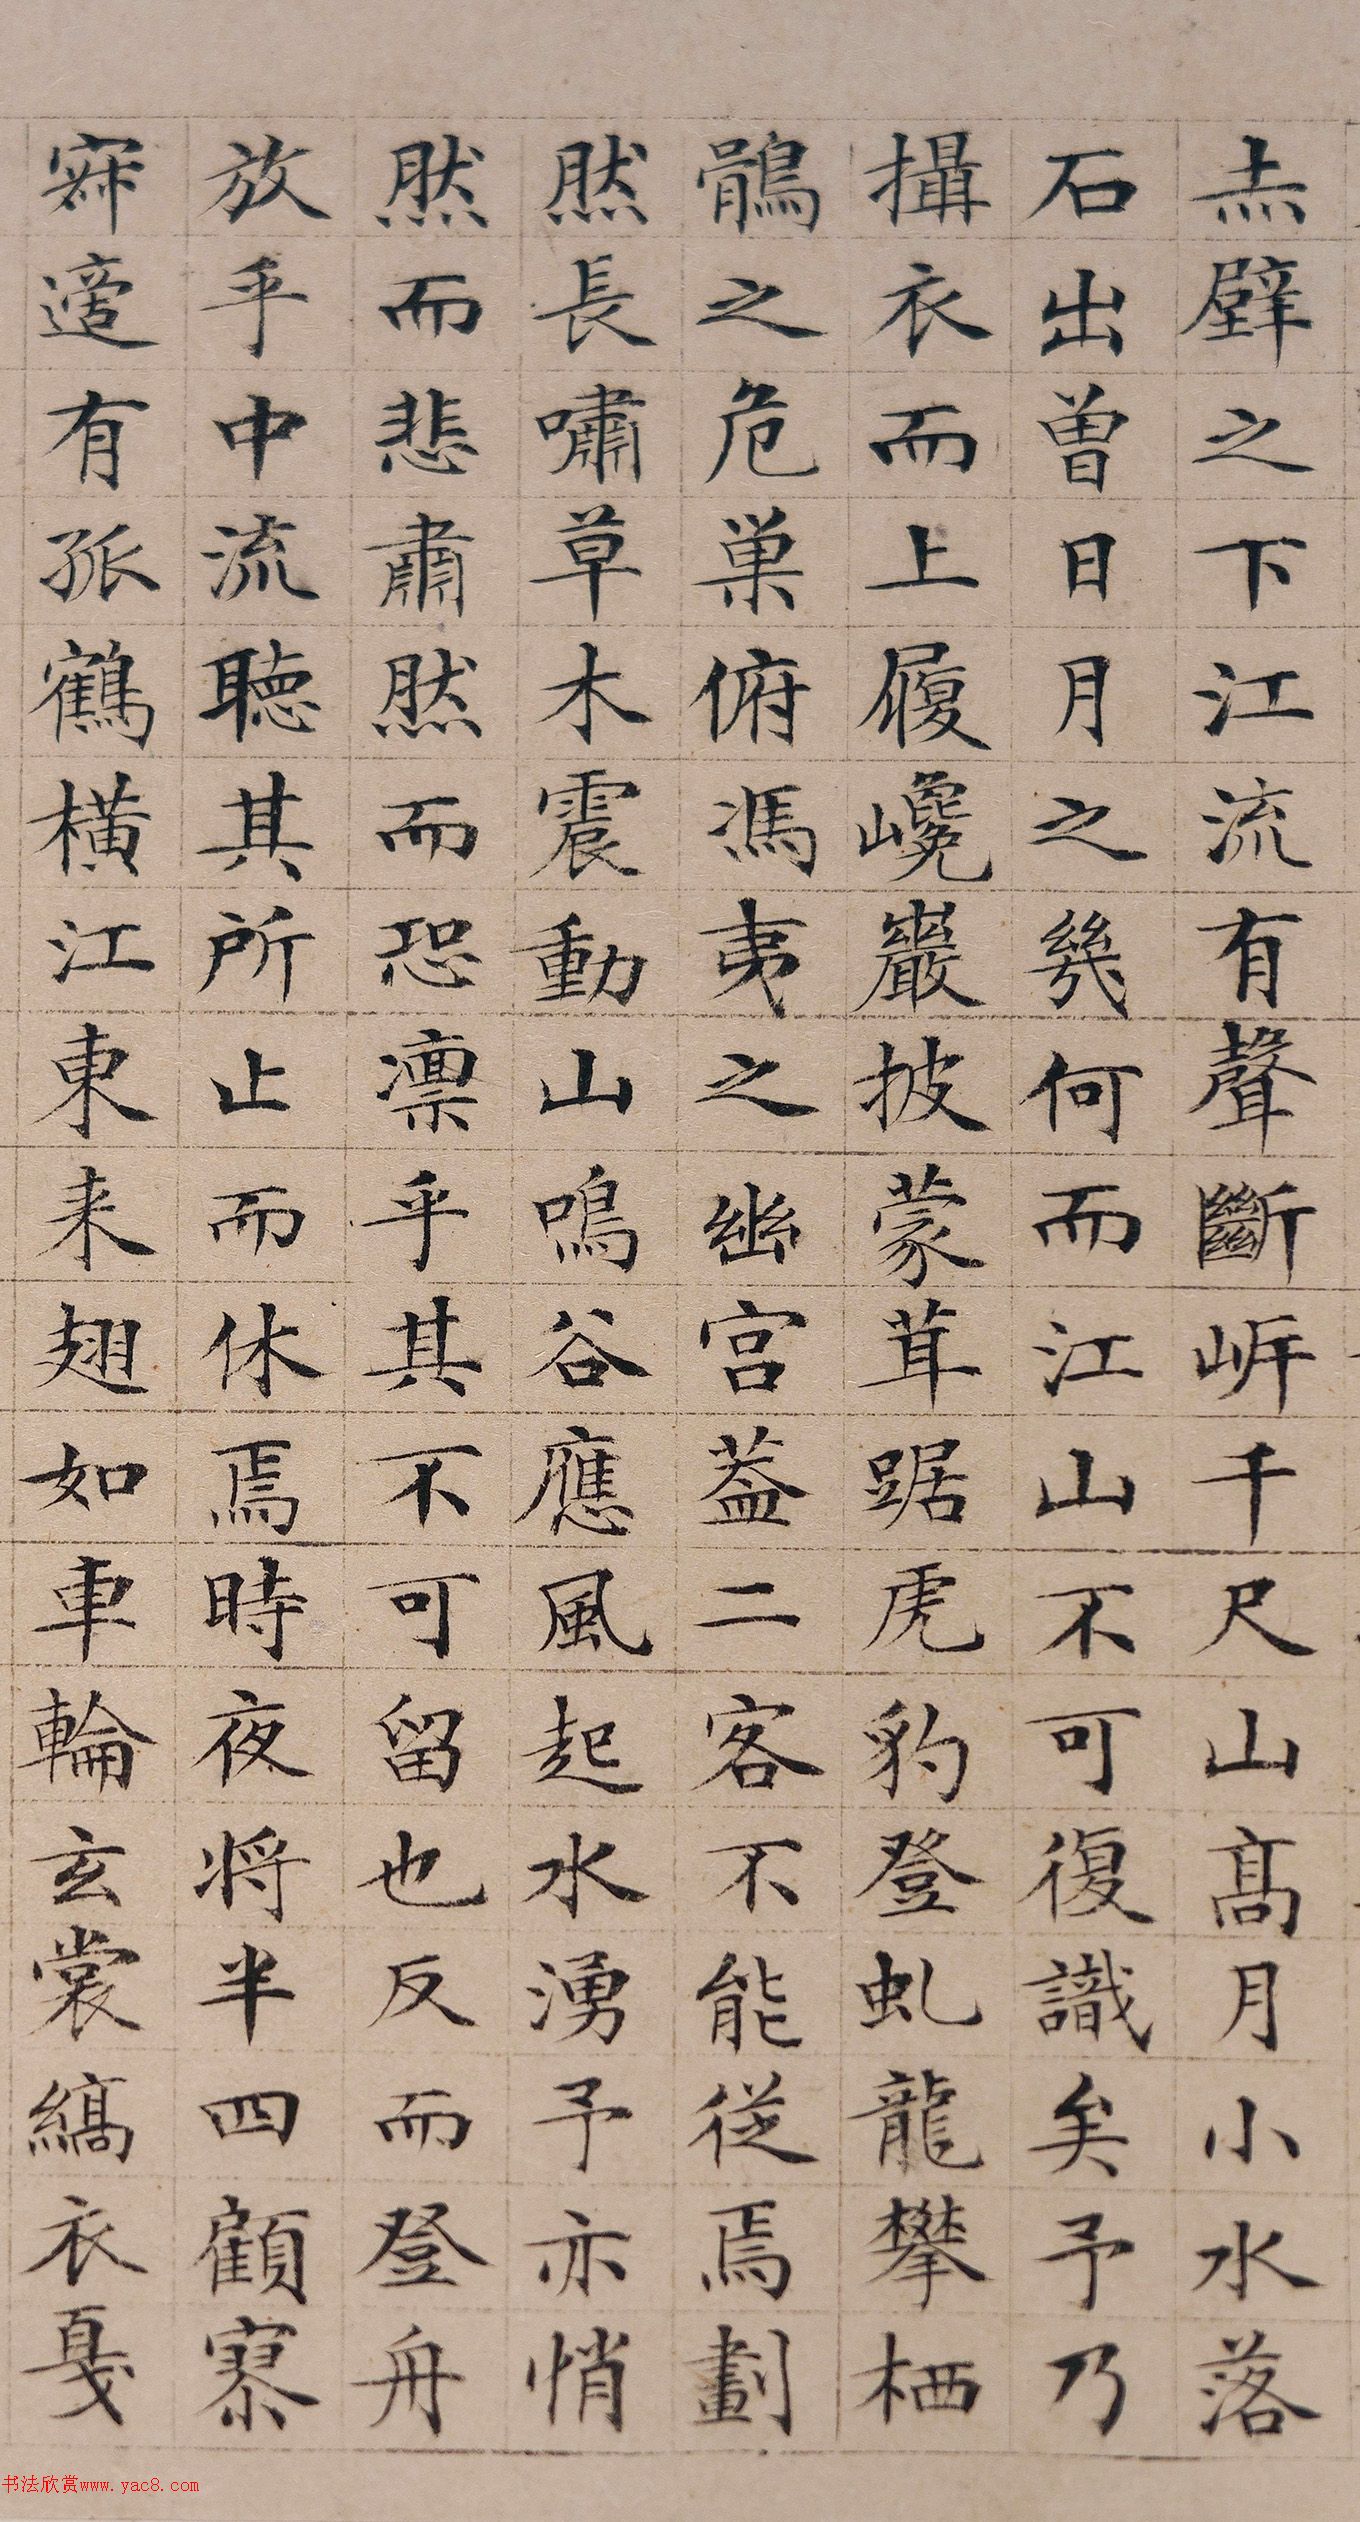 赤壁之下江流有聲斷岍千尺山髙月小水落
石出曽日月之㡬何而江山不可復識矣予乃
攝衣而上履巉巖披蒙茸踞虎豹登虬龍攀栖
鶻之危巢俯馮夷之幽宫葢二客不能從焉劃
然長嘯草木震動山鳴谷應風起水湧予亦悄
然而悲肅然而恐凛乎其不可留也反而登舟
放乎中流聽其所止而休焉時夜将半四顧寥
寂適有孤鶴橫江東来翅如車輪玄裳縞衣戛
书法欣赏www.yac8.com